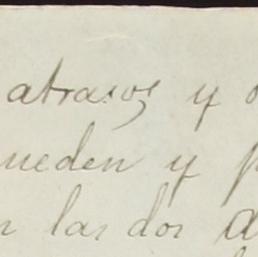 atrasos y
ueden y p
n las dos a